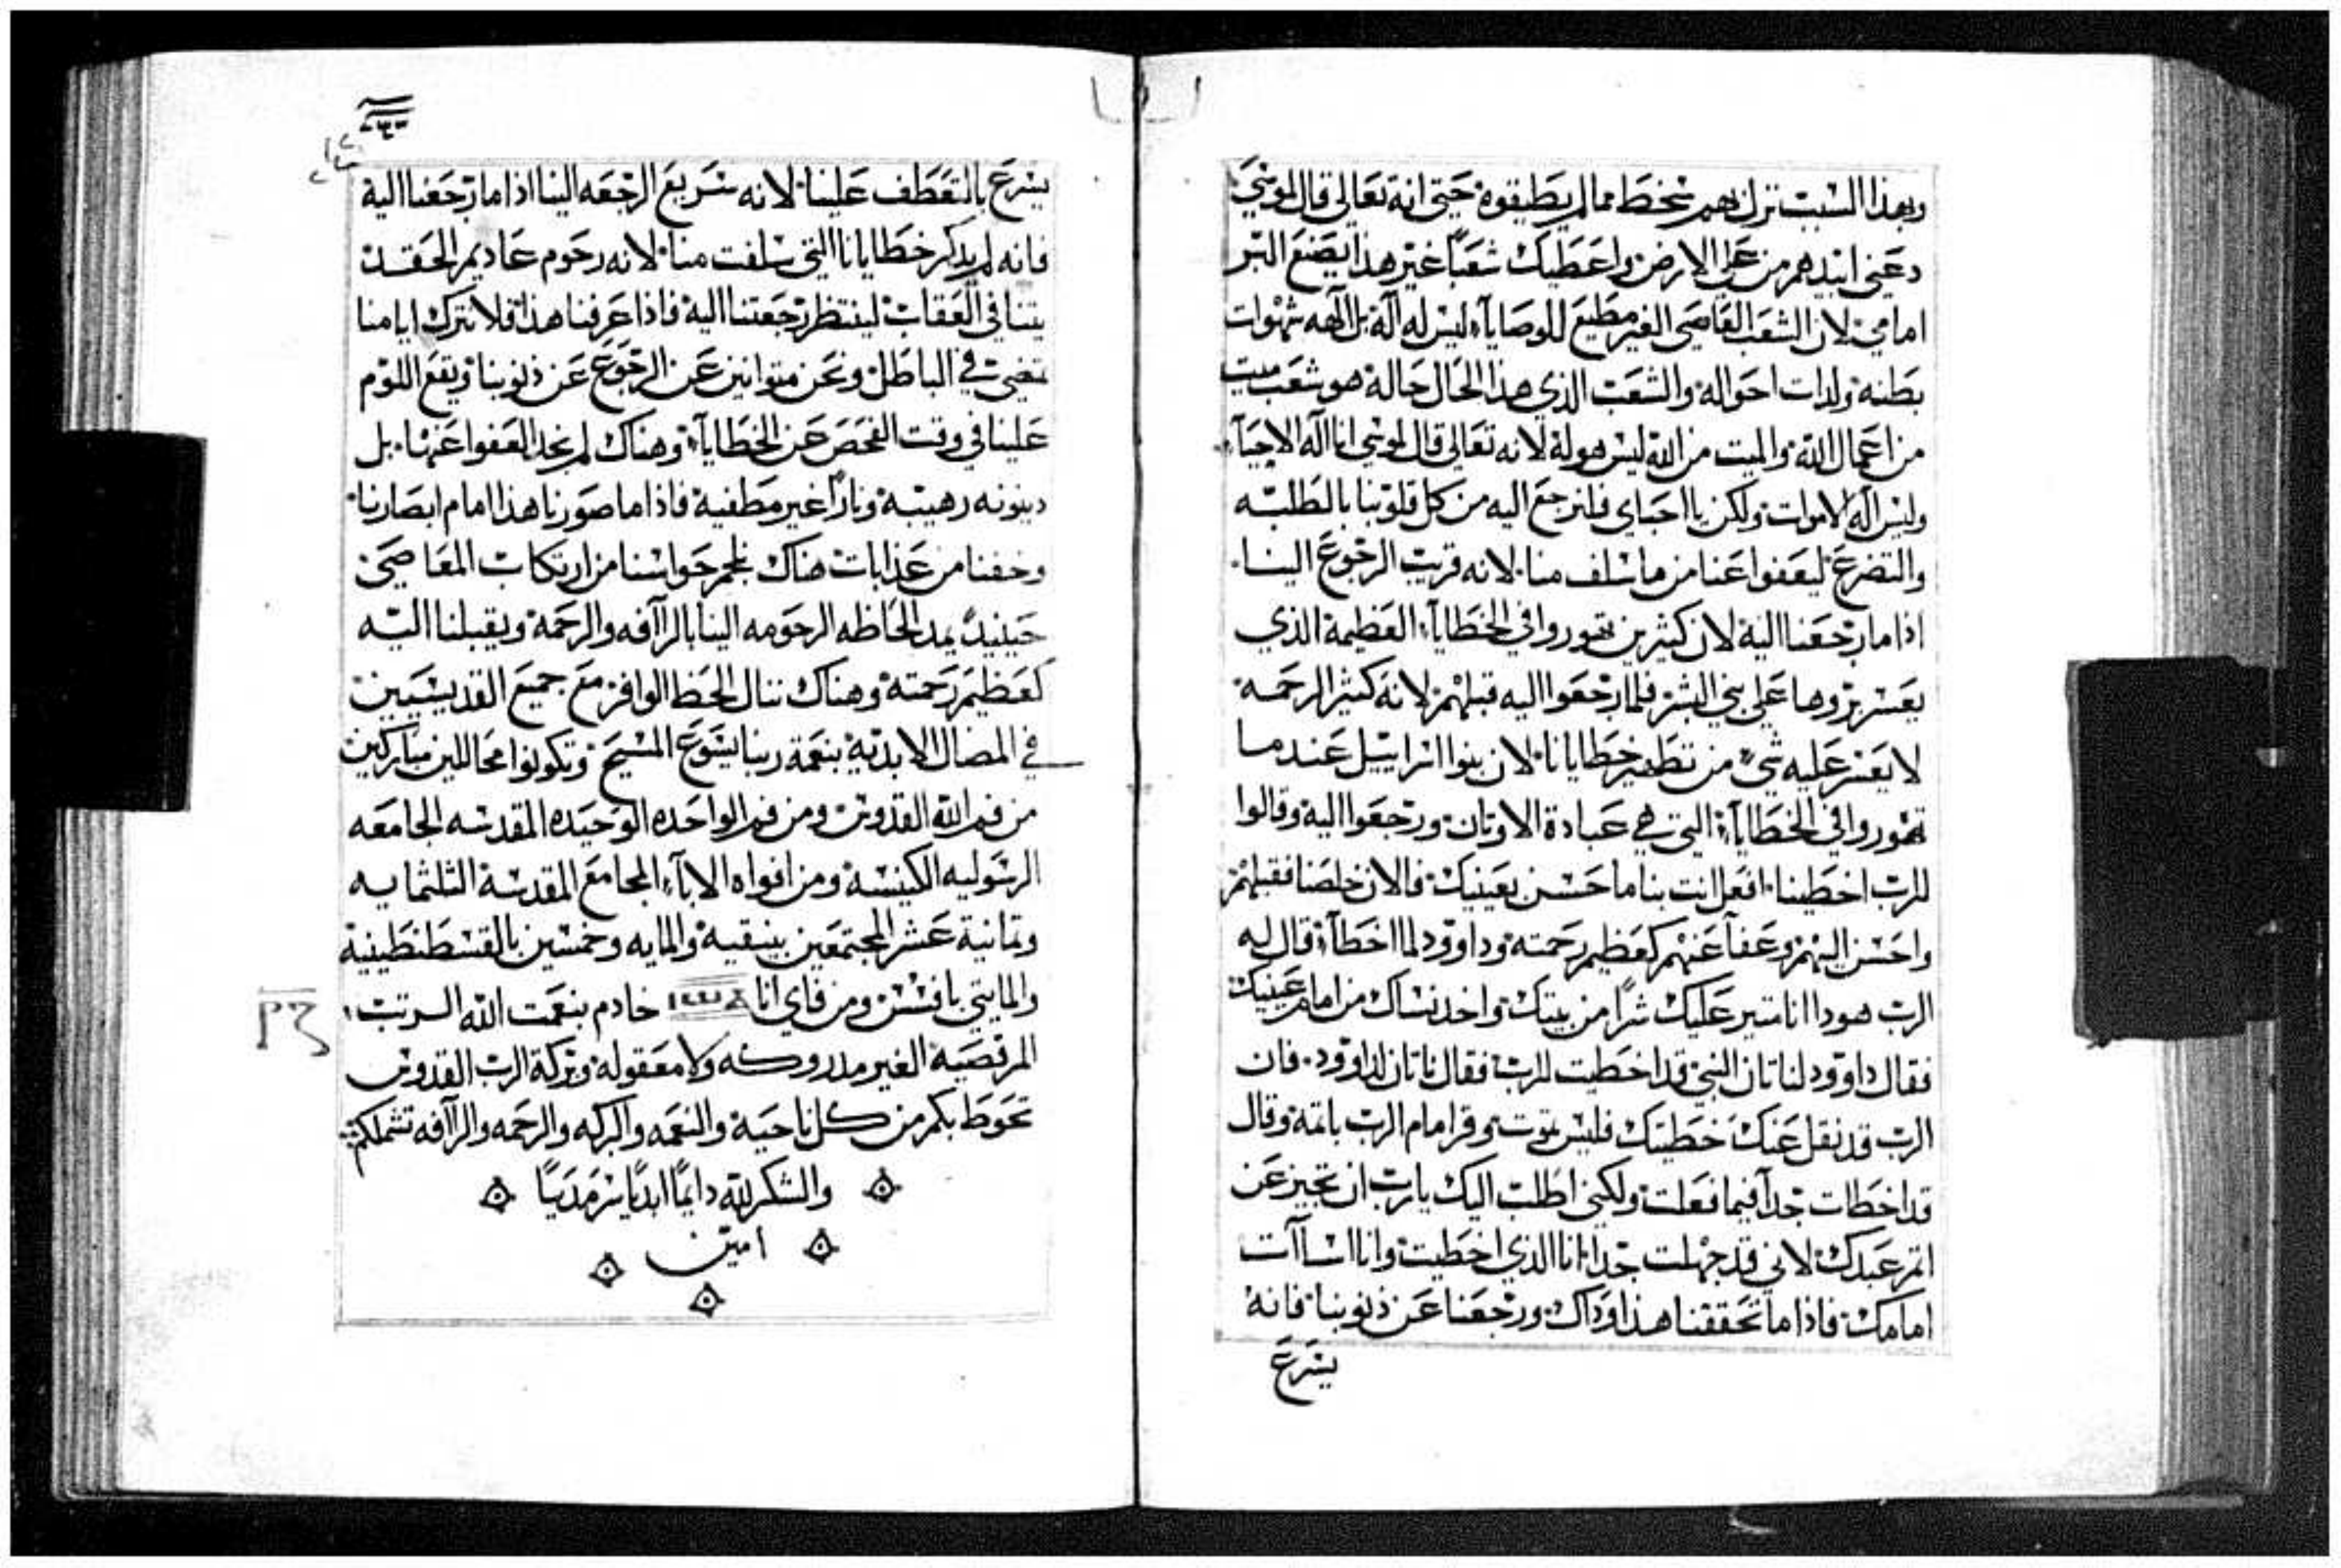 وبهذا السبب نزل بهم سخط مما لم يطيقوه حتى انه تعالى قال لموسى
دعني ابيدهم من على الارض واعطيك شعبًا غير هذا يصنع البر
امامي لان الشعب العاصى الغير مطيع للوصايآء ليس له آله بل آلهه شهوات
بطنه ولدات احواله والشعب الذي هذا الحال حاله هو شعب ميت
من اعمال الله والميت من الله ليس هو له لانه تعالى قال لموسى انا اله الاحيآء
وليس اله الاموات ولكن يا احباى فلنرجع اليه من كل قلوبنا بالطلبه
والتضرع ليعفوا عنا من ما سلف منا لانه قريب الرجوع الينا
اذا ما رجعنا اليه لان كثيرين تهوروا في الخطايآء العظيمة الذي
يعسر بروها على بني البشر فلما رجعوا اليه قبلهم لانه كثير الرحمه
لا يعسر عليه شيء من تطهير خطايانا لان بنوا اسراييل عندما
تهوروا في الخطايآء التي هي عبادة الاوتان ورجعوا اليه وقالوا
للرب اخطينا افعل انت بنا ما حسن بعينيك فالان خلصنا فقبلهم
واحسن اليهم وعفآ عنهم كعظيم رحمته وداوود لما اخطآء قال له
الرب هودا انا متير عليك شرًا من بيتك واخد نساك من امام عينيك
فقال داوود لناتان النبي قد اخطيت للرب فقال ناتان لداوود فان
الرب قد نقل عنك خطيتك فليس تموت وقر امام الرب باتمه وقال
قد اخطات جدآ فيما فعلت ولكني اطلب اليك يارب ان تجيز عن
اتم عبدك لاني قد جهلت جدا انا الذي اخطيت وانا اسآات
امامك فاذا ما تحققنا هذا وداك ورجعنا عن ذنوبنا فانه
يسرع
يسرع بالتعطف علينا لانه سريع الرجعه الينا اذا ما رجعنا اليه
فانه لم يدكر خطايانا التي سلفت منا لانه رحوم عاديم الحقد
يتنا في العقاب لينتظر رجعتنا اليه فاذا عرفنا هذا فلا نترك ايامنا
تمضي في الباطل ونحن متوانين عن الرجوع عن ذنوبنا ويقع اللوم
علينا في وقت الفحص عن الخطايآء وهناك لم نجد العفوا عنها بل
دينونه رهيبة ونارًا غير مطفية فاذا ما صورنا هذا امام ابصارنا
وخفنا من عذابات هناك نلجم حواسنا من ارتكاب المعاصى
حينيدً يمد الحاظه الرحومه الينا بالرآافه والرحمة ويقبلنا اليه
كعظيم رحمته وهناك ننال الحظ الوافر مع جميع القديسيين
في المضال الابديه بنعمة ربنا يسوع المسيح وتكونوا محاللين مباركين
من فم الله القدوس ومن فم الواحده الوحيده المقدسه الجامعه
الرسوليه الكنيسة ومن افواه الابآء المجامع المقدسة الثلثمايه
وتمانية عشر المجتمعين بنيقيه والمايه وخمسين بالقسطنطينية
والمايتي بافسس ومن فاي انا خادم بنعمت الله الرتب
المرقصية الغير مدروكه ولا معقوله وبركة الرب القدوس
تحوط بكم من كل ناحية والنعمه والبركه والرحمه والرآافه تشملكم
والشكر لله دايمًا ابديًا سرمديًا
امين